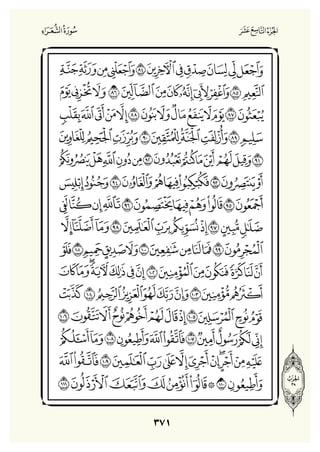 الجُزْءُ التَّاسِعَ عَشَرَ سُورَةُ الشُّعَرَاءِ
وَٱجۡعَل لِّي لِسَانَ صِدۡقٖ فِي ٱلۡأٓخِرِينَ ٨٤ وَٱجۡعَلۡنِي مِن وَرَثَةِ جَنَّةِ
ٱلنَّعِيمِ ٨٥ وَٱغۡفِرۡ لِأَبِيٓ إِنَّهُۥ كَانَ مِنَ ٱلضَّآلِّينَ ٨٦ وَلَا تُخۡزِنِي يَوۡمَ
يُبۡعَثُونَ ٨٧ يَوۡمَ لَا يَنفَعُ مَالٞ وَلَا بَنُونَ ٨٨ إِلَّا مَنۡ أَتَى ٱللَّهَ بِقَلۡبٖ
سَلِيمٖ ٨٩ وَأُزۡلِفَتِ ٱلۡجَنَّةُ لِلۡمُتَّقِينَ ٩٠ وَبُرِّزَتِ ٱلۡجَحِيمُ لِلۡغَاوِينَ
٩١ وَقِيلَ لَهُمۡ أَيۡنَ مَا كُنتُمۡ تَعۡبُدُونَ ٩٢ مِن دُونِ ٱللَّهِ هَلۡ يَنصُرُونَكُمۡ
أَوۡ يَنتَصِرُونَ ٩٣ فَكُبۡكِبُواْ فِيهَا هُمۡ وَٱلۡغَاوُۥنَ ٩٤ وَجُنُودُ إِبۡلِيسَ
أَجۡمَعُونَ ٩٥ قَالُواْ وَهُمۡ فِيهَا يَخۡتَصِمُونَ ٩٦ تَٱللَّهِ إِن كُنَّا لَفِي
ضَلَٰلٖ مُّبِينٍ ٩٧ إِذۡ نُسَوِّيكُم بِرَبِّ ٱلۡعَٰلَمِينَ ٩٨ وَمَآ أَضَلَّنَآ إِلَّا
ٱلۡمُجۡرِمُونَ ٩٩ فَمَا لَنَا مِن شَٰفِعِينَ ١٠٠ وَلَا صَدِيقٍ حَمِيمٖ ١٠١ فَلَوۡ
أَنَّ لَنَا كَرَّةٗ فَنَكُونَ مِنَ ٱلۡمُؤۡمِنِينَ ١٠٢ إِنَّ فِي ذَٰلِكَ لَأٓيَةٗۖ وَمَا كَانَ
أَكۡثَرُهُم مُّؤۡمِنِينَ ١٠٣ وَإِنَّ رَبَّكَ لَهُوَ ٱلۡعَزِيزُ ٱلرَّحِيمُ ١٠٤ كَذَّبَتۡ
قَوۡمُ نُوحٍ ٱلۡمُرۡسَلِينَ ١٠٥ إِذۡ قَالَ لَهُمۡ أَخُوهُمۡ نُوحٌ أَلَا تَتَّقُونَ ١٠٦
إِنِّي لَكُمۡ رَسُولٌ أَمِينٞ ١٠٧ فَٱتَّقُواْ ٱللَّهَ وَأَطِيعُونِ ١٠٨ وَمَآ أَسۡـَٔلُكُمۡ
عَلَيۡهِ مِنۡ أَجۡرٍۖ إِنۡ أَجۡرِيَ إِلَّا عَلَىٰ رَبِّ ٱلۡعَٰلَمِينَ ١٠٩ فَٱتَّقُواْ ٱللَّهَ
وَأَطِيعُونِ ١١٠ ۞ قَالُوٓاْ أَنُؤۡمِنُ لَكَ وَٱتَّبَعَكَ ٱلۡأَرۡذَلُونَ ١١١
الحزب
٣٨
٣٧١